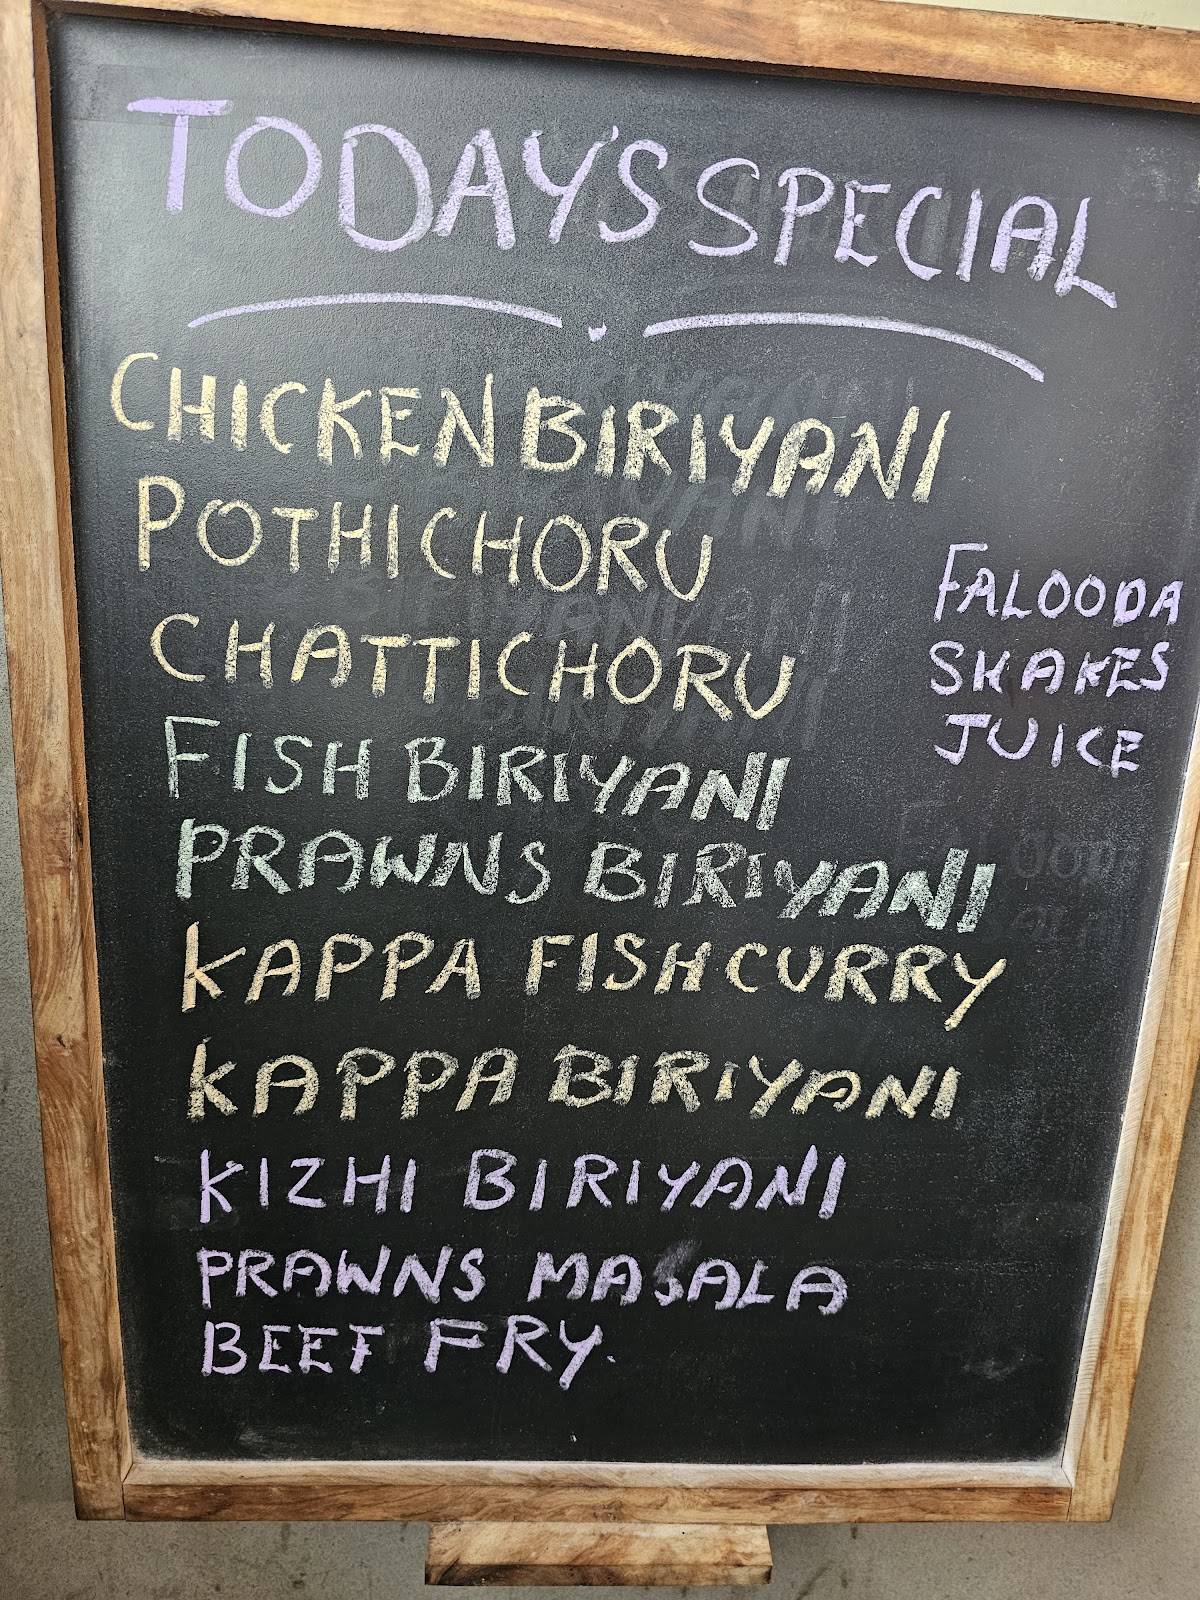 TODAY'S SPECIAL
CHICKEN BIRIYANI
POTHICHORU
CHATTICHORU
FISH BIRIYANI
PRAWNS BIRIYANI
KAPPA FISHCURRY
KAPPA BIRIYANI
KIZHI BIRIYANI
PRAWNS MASALA
BEEF FRY.
FALOODA
SHAKES
JUICE